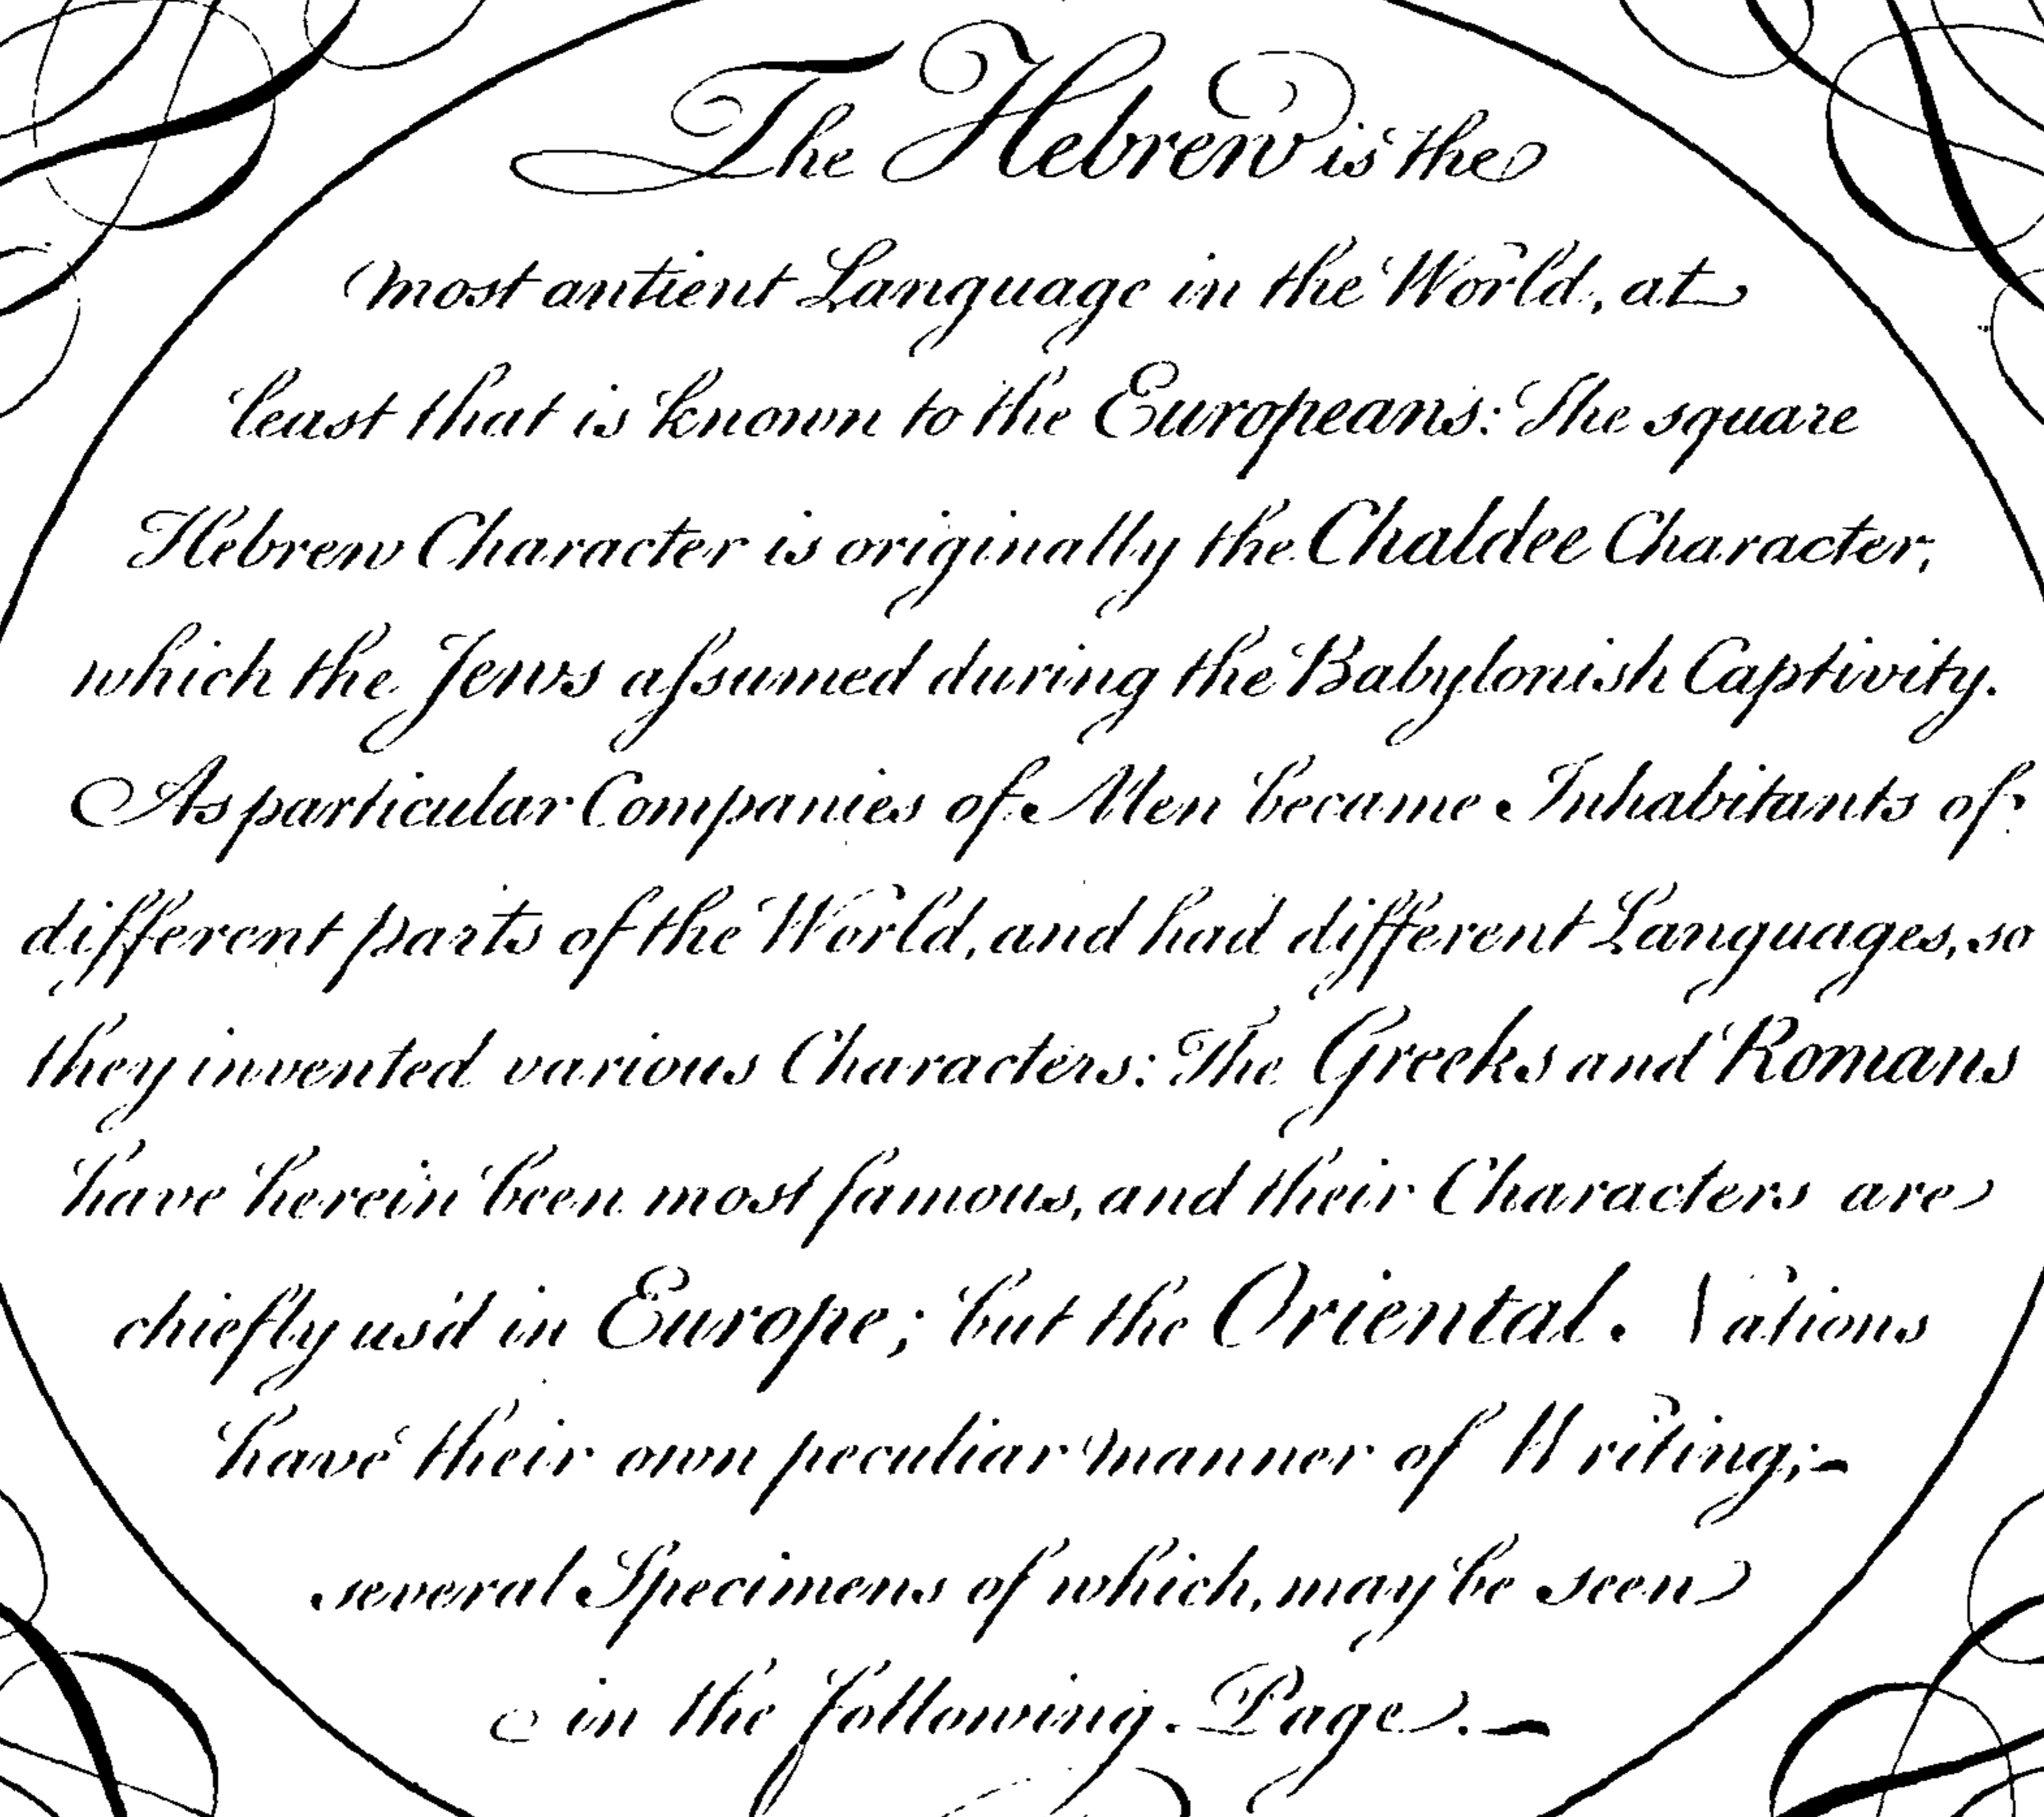 The Hebrew is the
most antient Language in the World, at
least that is known to the Europeans: The square
Hebrew Character is originally the Chaldee Character,
which the Jews aſsumed during the Babylonish Captivity.
As particular Companies of Men became Inhabitants of
different parts of the World, and had different Languages, so
they invented various Characters: The Greeks and Romans
have herein been most famous, and their Characters are
chiefly us'd in Europe; but the Oriental Nations
have their own peculiar manner of Writing;-
several Specimens of which, may be seen
in the following Page.-